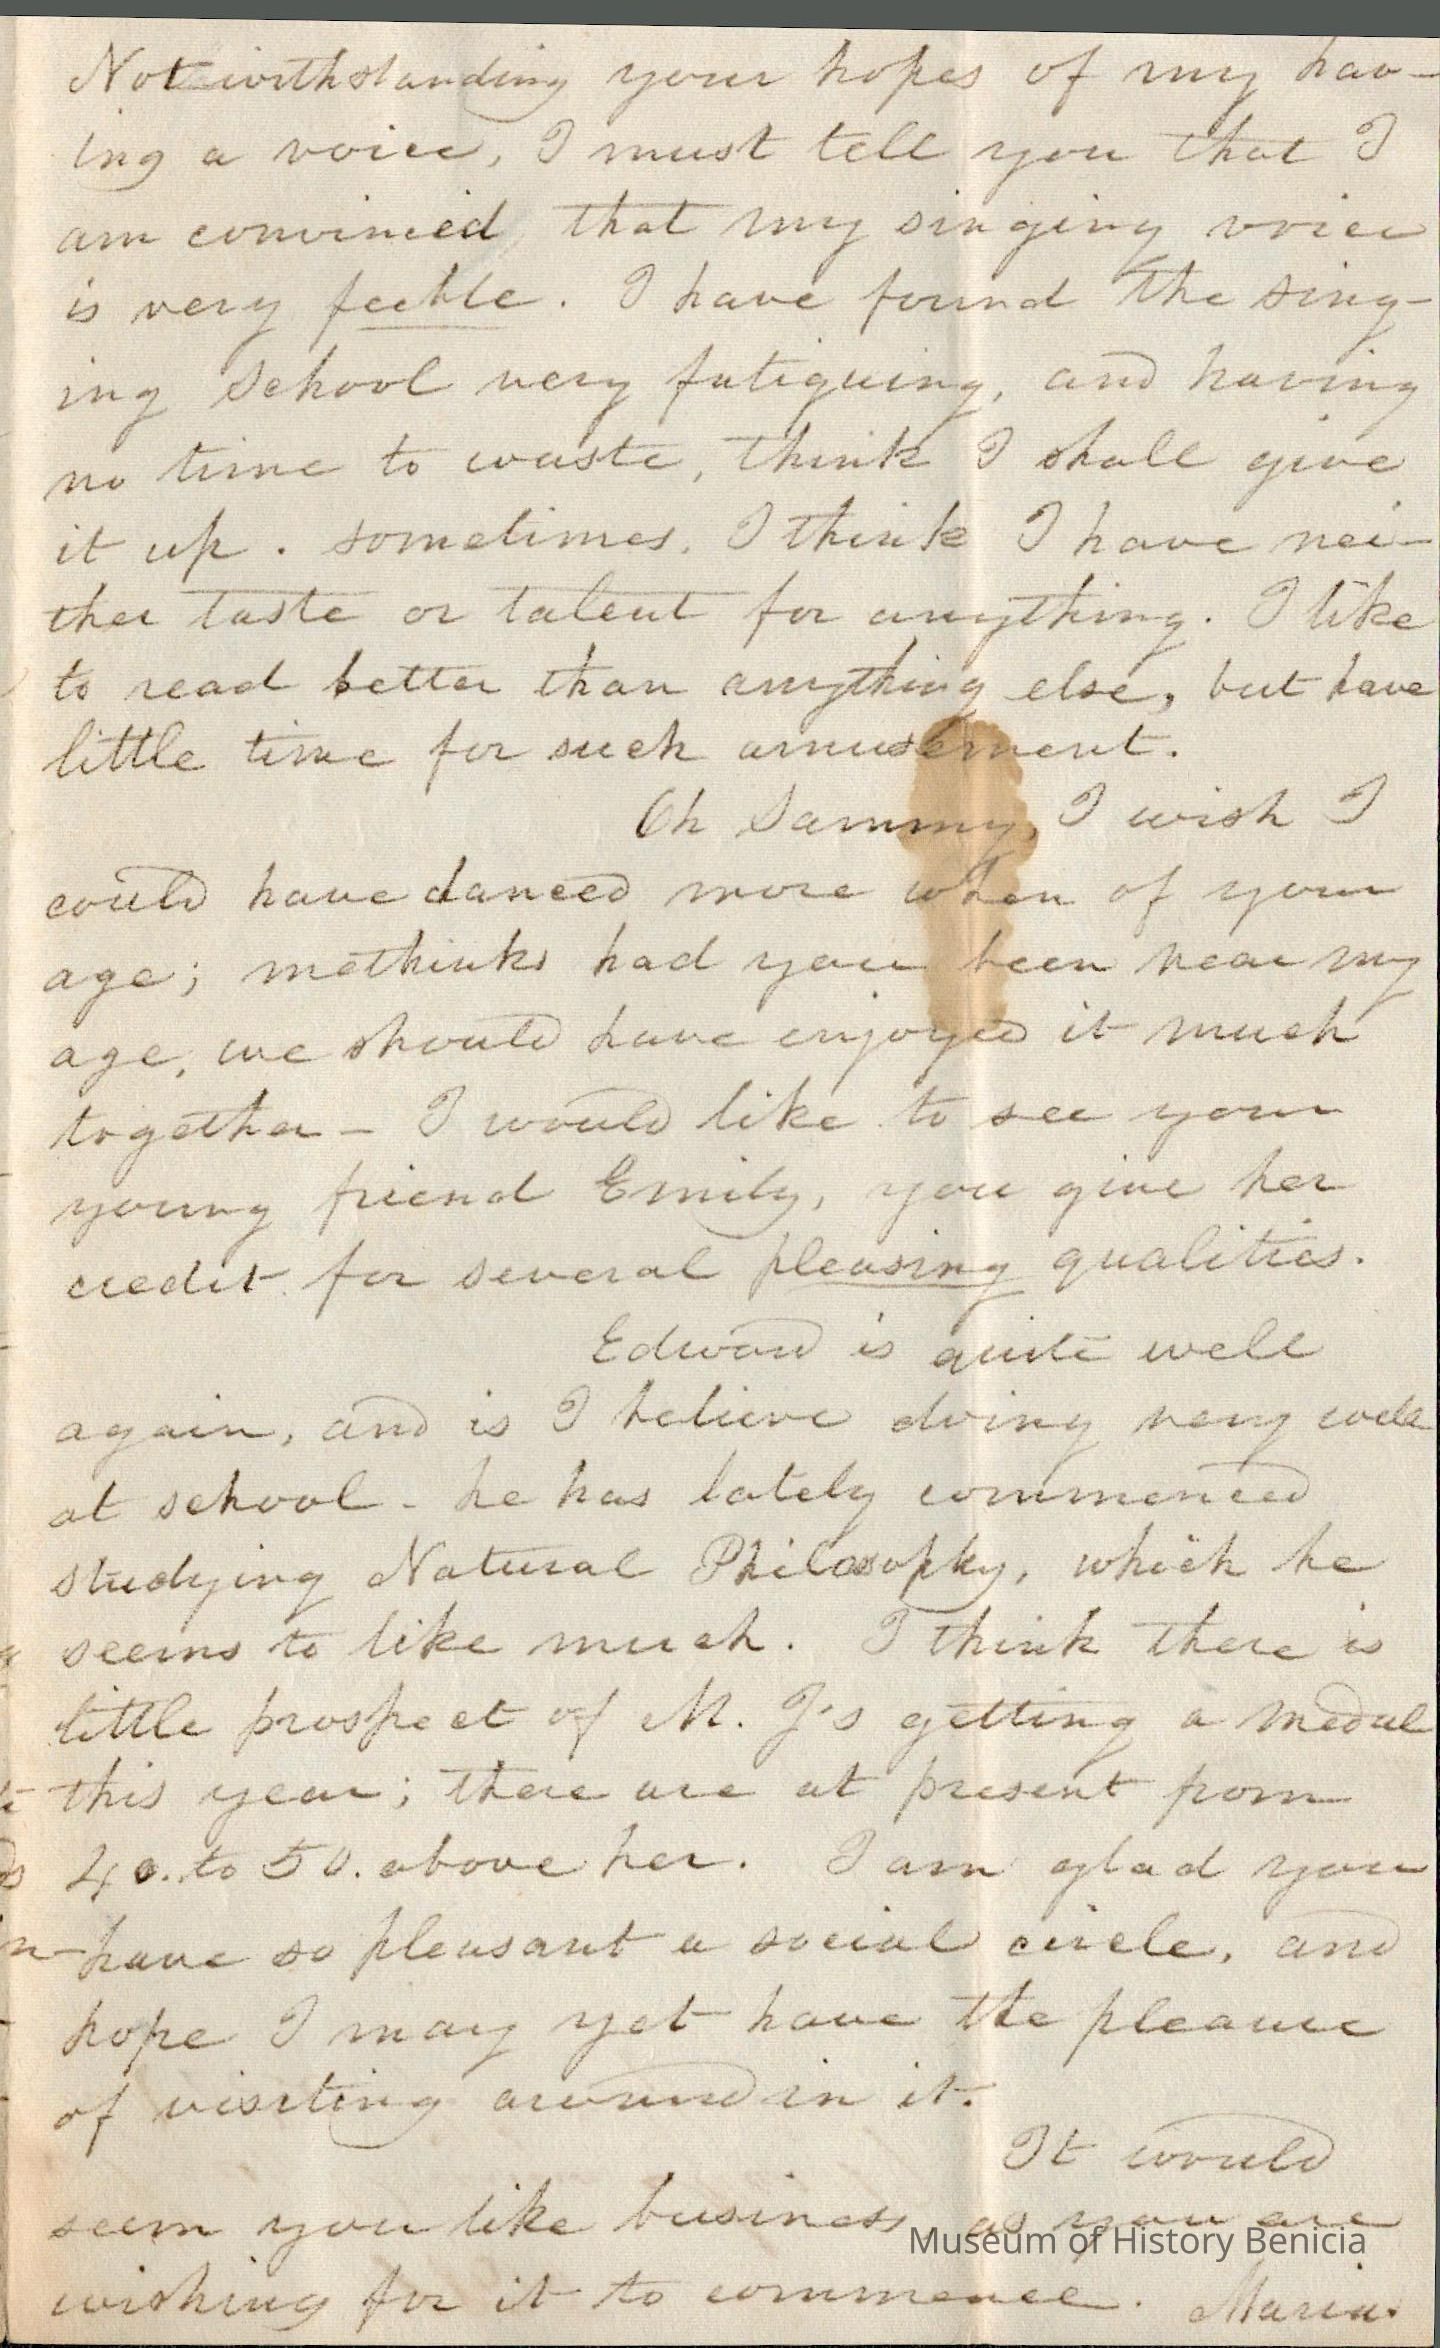 Notwithstanding your hopes of my hav-
ing a voice, I must tell you that I
am convinced that my singing voice
is very feeble. I have found the sing-
ing school very fatiguing, and having
no time to waste, think I shall give
it up. sometimes, I think I have nei-
ther taste or talent for anything. I like
to read better than anything else, but have
little time for such amusement.
Oh Sammy, I wish I
could have danced more when of your
age; methinks had you been near my
age, we should have enjoyed it much
together - I would like to see your
young friend Emily, you give her
credit for several pleasing qualities.
Edward is quite well
again, and is I believe doing very well
at school - he has lately commenced
studying Natural Philosophy, which he
seems to like much. I think there is
little prospect of M. J's getting a medal
this year; there are at present from
40. to 50. above her. I am glad you
have so pleasant a social circle, and
hope I may yet have the pleasure
of visiting around in it.
It would
seem you like business as you are
wishing for it to commence. Maria.
Museum of History Benicia